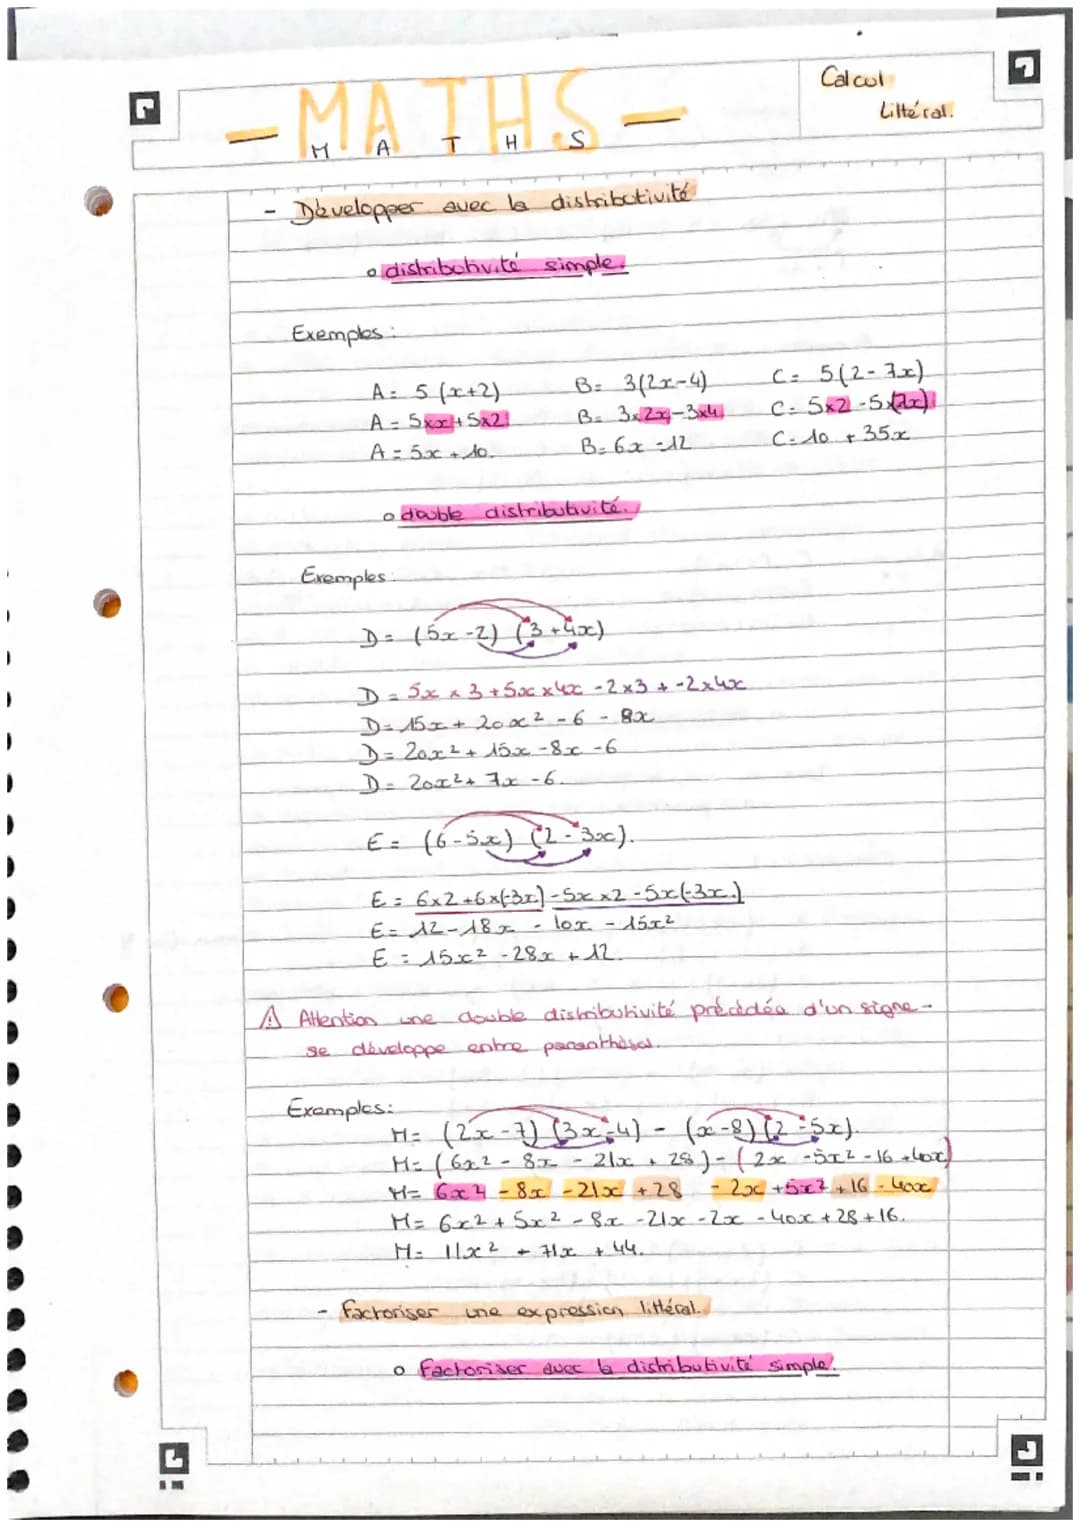 Calcul
Littéral.
- MATHS -
M A T H S
- Développer avec la distributivité
o distributivité simple.
Exemples :
A = 5 (x+2) B = 3(2x-4) C = 5(2-7x)
A = 5xx+5x2 B = 3x2x-3x4 C = 5x2 -5x(7x)
A = 5x + 10. B = 6x - 12 C = 10 + 35x
o double distributivité.
Exemples :
D = (5x-2) (3+4x)
D = 5x x 3 + 5x x 4x - 2x3 + -2x4x
D = 15x + 20x² - 6 - 8x
D = 20x² + 15x - 8x - 6
D = 20x² + 7x - 6.
E = (6-5x) (2-3x).
E = 6x2+6x(-3x)-5x x2 -5x(-3x.)
E = 12-18x - 10x - 15x²
E = 15x² - 28x + 12.
⚠ Attention une double distributivité précédée d'un signe -
se développe entre parenthèses.
Exemples:
H = (2x-7) (3x-4) - (x-8) (2-5x).
H = (6x² - 8x - 21x + 28) - (2x -5x² -16 +40x)
H = 6x² - 8x - 21x + 28 - 2x + 5x² + 16 - 40x
H = 6x² + 5x² - 8x - 21x - 2x - 40x + 28 + 16.
H = 11x² - 71x + 44.
- Factoriser une expression littéral.
o Factoriser avec la distributivité simple.